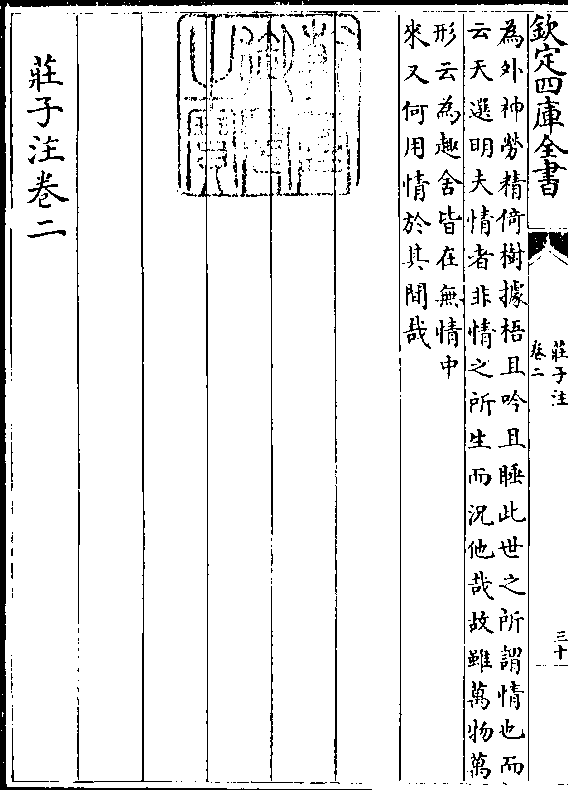 欽定四庫全書
莊子注
卷二
三十
為外神勞精倚樹據梧且吟且睡此世之所謂情也而
云天選明夫情者非情之所生而況他哉故雖萬物萬
形云為趣舍皆在無情中
來又何用情於其間哉
莊子注卷二